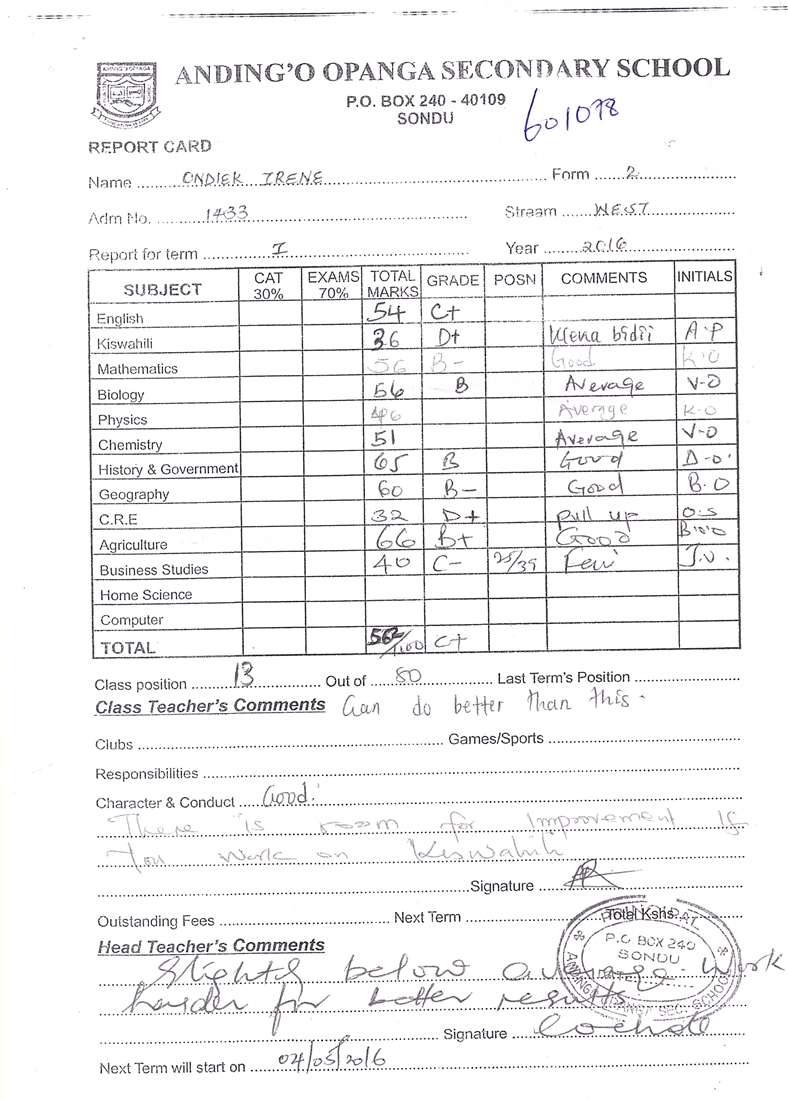 ANDING'O OPANGA SECONDARY SCHOOL
P.O. BOX 240 - 40109
SONDU
601078
REPORT CARD
Name ONDIEK IRENE Form 2
Adm No. 1433 Stream WEST
Report for term I Year 2016
SUBJECT CAT 30% EXAMS 70% TOTAL MARKS GRADE POSN COMMENTS INITIALS
English 54 C+
Kiswahili 36 D+ Wena bidii A.P
Mathematics 56 B- Good K.O
Biology 56 B Average V-O
Physics 46 Average K-O
Chemistry 51 Average V-O
History & Government 65 B Good D-O.
Geography 60 B- Good B.O
C.R.E 32 D+ pull up O.S
Agriculture 66 B+ Good
Business Studies 40 C- 25/39 J.O.
Home Science
Computer
TOTAL 562/1100 C+
Class position 13 Out of 80 Last Term's Position
Class Teacher's Comments Can do better than this.
Clubs Games/Sports
Responsibilities
Character & Conduct Good.
There is room for improvement if
you work on Kiswahili
Signature
Outstanding Fees Next Term Total Kshs.
PRINCIPAL
P.O BOX 240
SONDU
Head Teacher's Comments
Slightly below average. Work
harder for better results.
Signature
Next Term will start on 04/05/2016